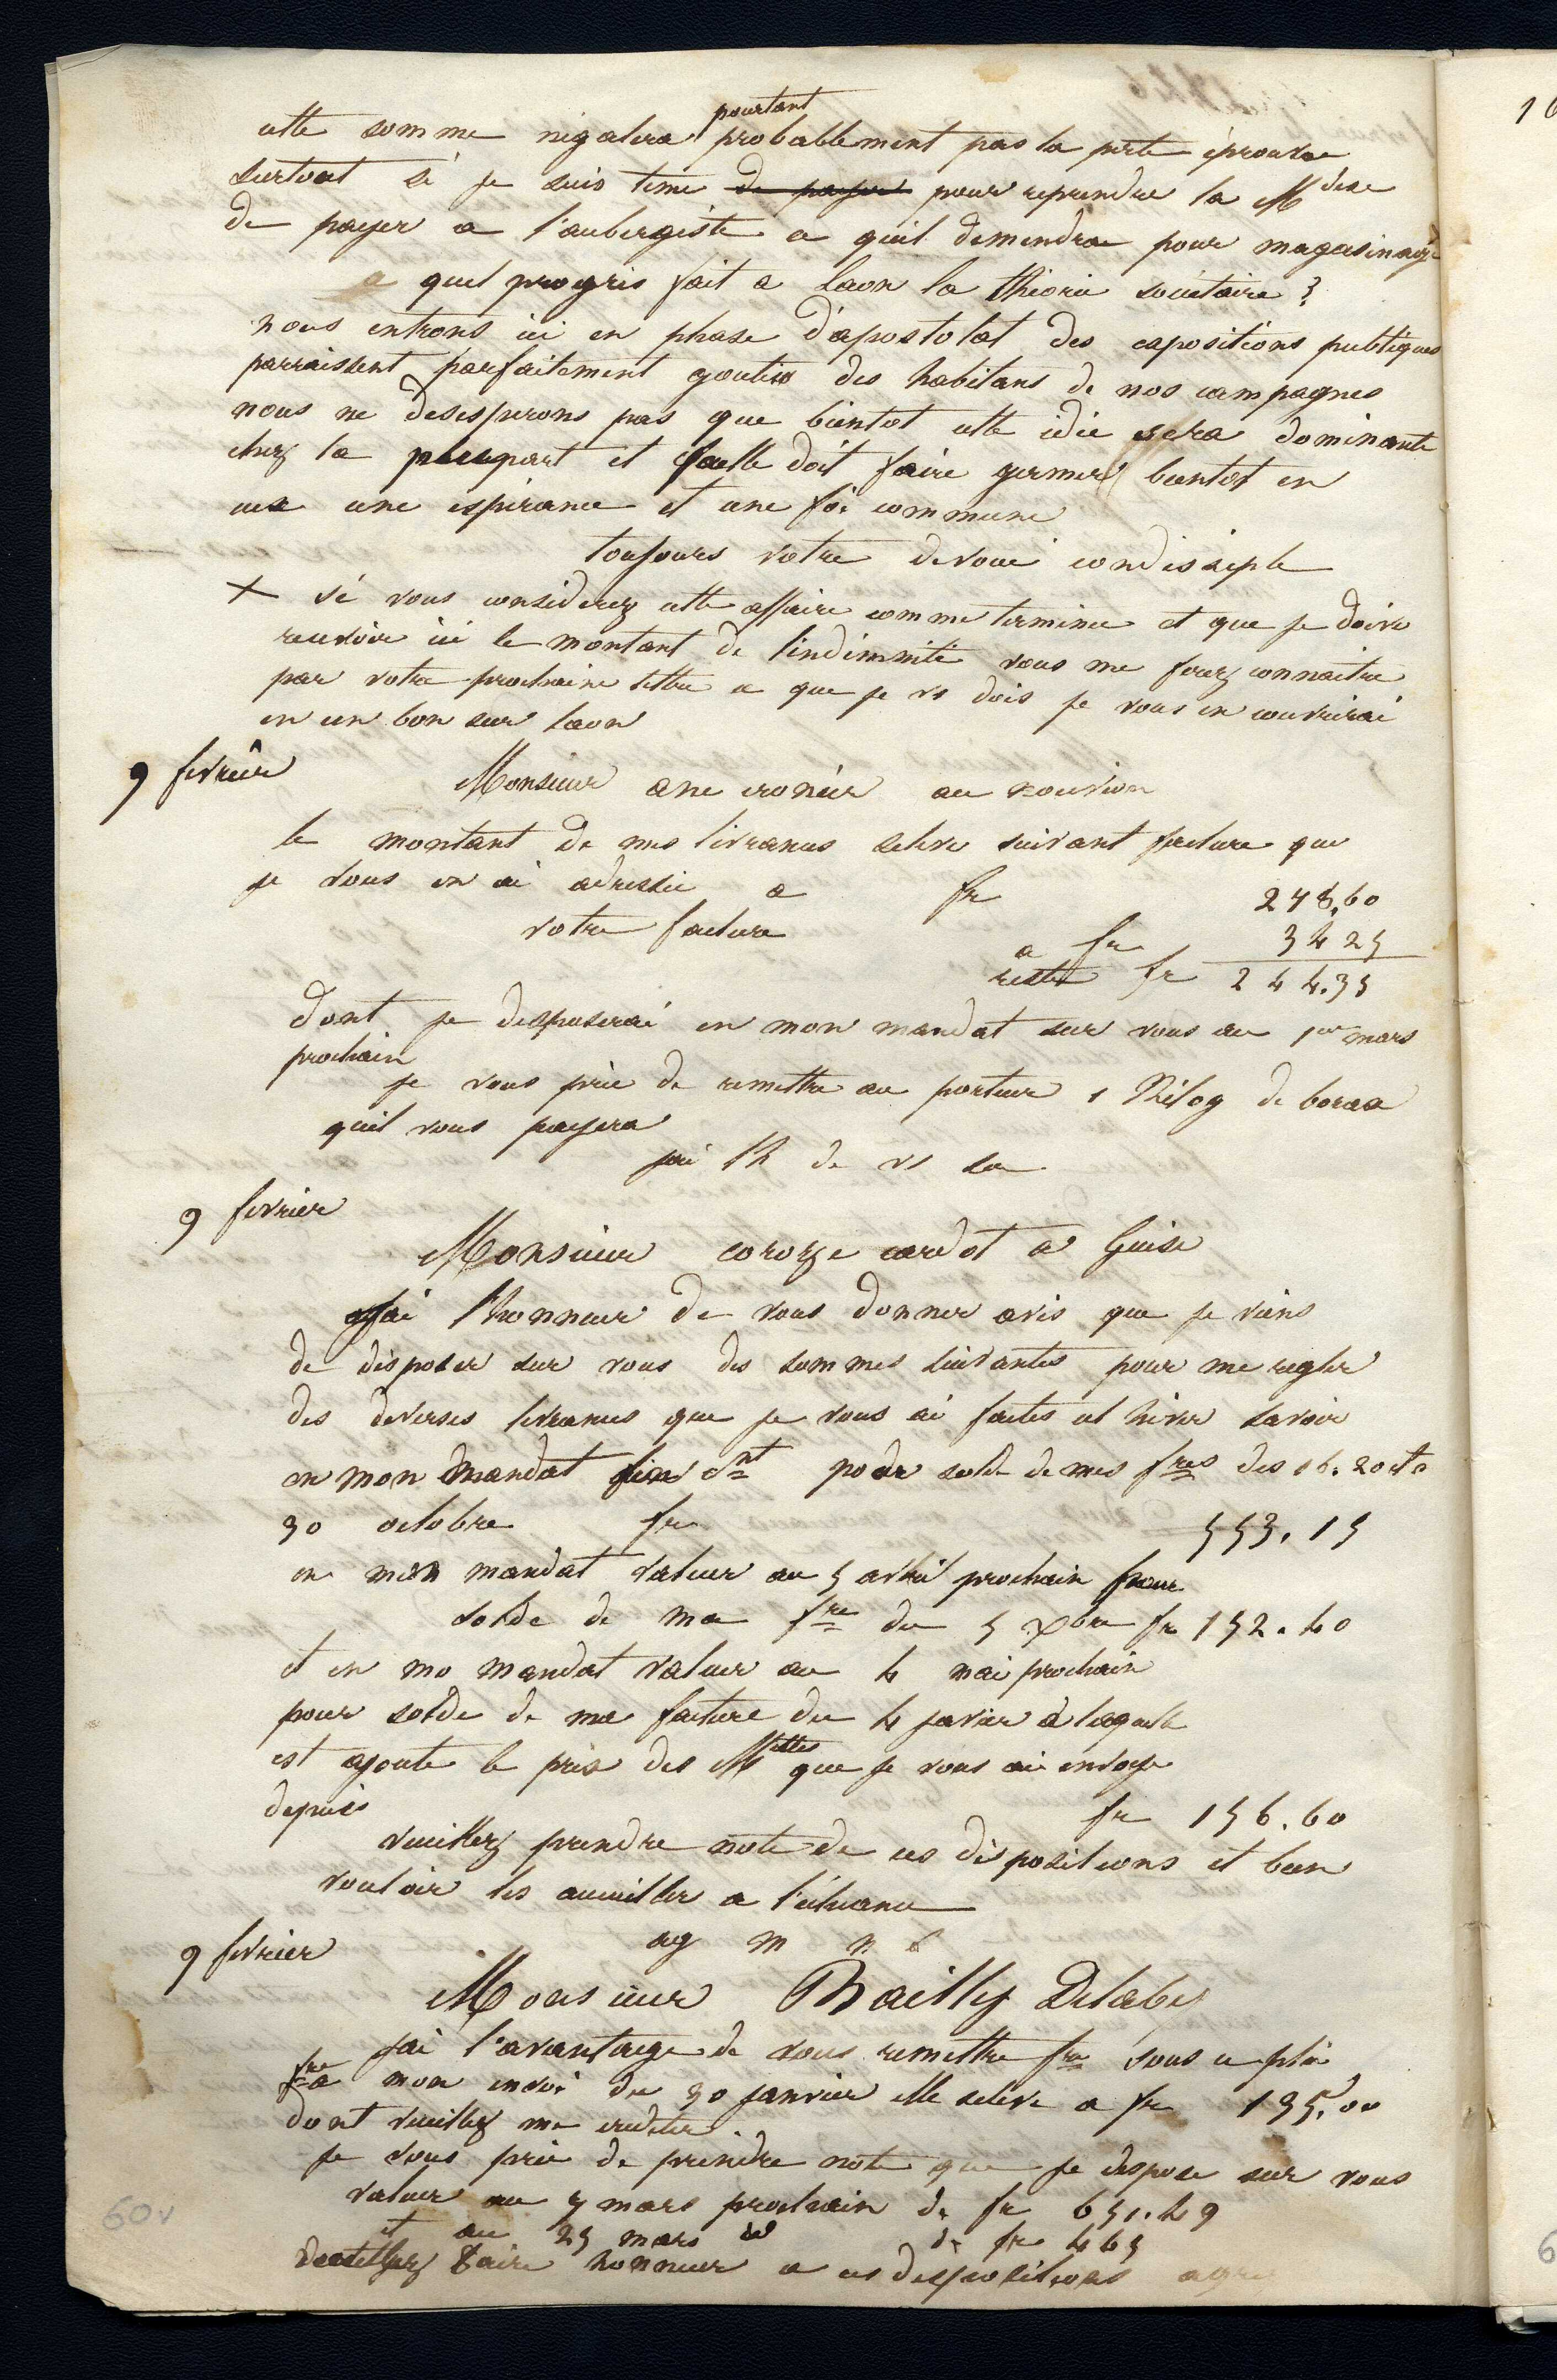 pourtant
cette somme négalera probablement pas la perte éprouvée
surtout si je suis tenu de payer pour reprendre la Mdise
de payer a l'aubergiste ce quil demendra pour magasinage
quel progrès fait a Laon la théorie sociétaire ?
nous entrons ici en phase d'apostolat des expositions publiques
parraissent parfaitement goutées des habitans de nos campagnes
nous ne desesperons pas que bientot cette idée sera dominante
chez la plupart et quelle doit faire germer bientot en
eux une espérance et une foi commune
toujours votre devoué condisciple
+ si vous considerez cette affaire comme terminée et que je doive
recevoir ici le montant de lindémnité vous me ferez connaitre
par votre prochaine lettre ce que je vs dois je vous en couvrirai
en un bon sur Laon
9 fevrier
Monsieur au nouvion
le montant de mes livrances selève suivant facture que
je vous en ai adressée a fr 278,60
votre facture a fr 34 25
reste fr 244.35
dont je disposerai en mon mandat sur vous au 1er mars
prochain
je vous prie de remettre au porteur 1 Kilog de borax
quil vous payera
jai lh de vs sa
9 fevrier
Monsieur coroze cardot a Guise
Jai l'honneur de vous donner avis que je viens
de disposer sur vous des sommes suivantes pour me regler
des diverses livrances que je vous ai faites cet hiver savoir
en mon mandat fin ct pour solde de mes fres des 16. 20 et
30 octobre fr 553.15
en mon mandat valeur au 5 avril prochain pour
solde de ma fre du 5 Xbre fr 152.40
et en mo mandat valeur au 4 mai prochain
pour solde de ma facture du 4 javier à laquelle
est ajouté le prix des Mttes que je vous ai envoyé
depuis fr 156.60
veuillez prendre note de ces dispositions et bien
vouloir les acceuiller a l'écheance
ag m n
9 fevrier
Monsieur Bailly Delabey
jai l'avantage de vous remettre fre sous ce pli
fre a mon envoi du 30 janvier elle selève a fr 195,00
dont veuillez me créditer
je vous prie de prendre note que je dispose sur vous
valeur au 5 mars prochain de fr 651.49
et au 25 mars id de fr 465
veuillez faire honneur a ces dispositions agre
60v